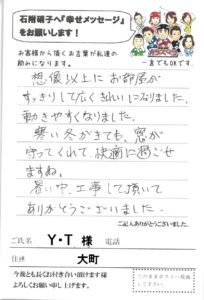 石附硝子へ『幸せメッセージ』
をお願いします!
お客様から頂くお言葉が私達の
励みになります。
一言でもOKです。
想像以上にお部屋が
すっきりして広くきれいになりました。
動きやすくなりました。
寒い冬がきても、窓が
守ってくれて、快適に過ごせ
ますね。
暑い中、工事して頂いて
ありがとうございました。
ご記入ありがとうございました。
ご氏名 Y・T 様 電話
住所 大町
今後とも長くお付き合い頂けます様
よろしくお願い申し上げます。
このままポストへ投函
して下さい。